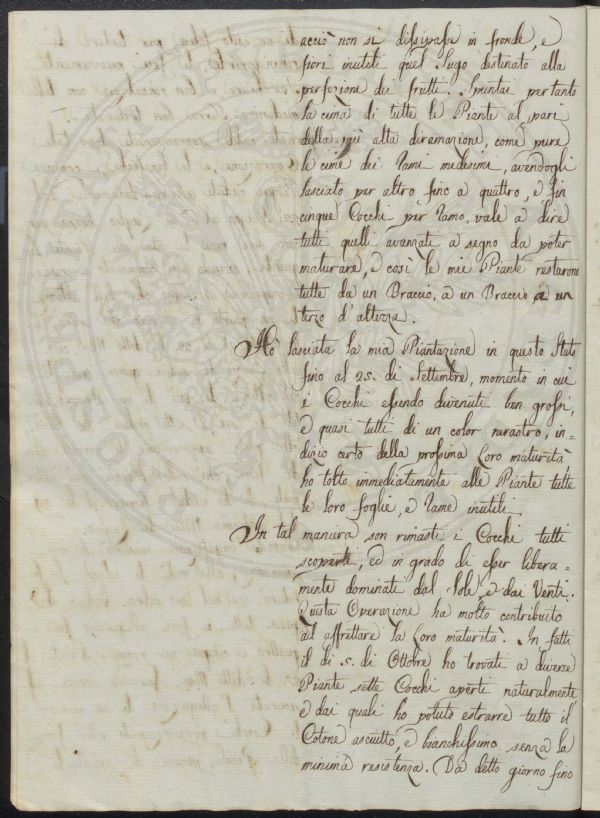 acciò non si dissipasse in fronde, e
fiori inutili quel Sugo destinato alla
perfezione dei frutti. Spuntai pertanto
la cima di tutte le Piante al pari
della più alta diramazione, come pure
le cime dei Rami medesimi, avendogli
lasciato per altro fino a quattro, e fin
cinque Cocchi per Ramo, vale a dire
tutti quelli avanzati a segno da poter
maturare, e così le mie Piante restarono
tutte da un Braccio, a un Braccio e un
terzo d'altezza.
Hò lasciata la mia Piantazione in questo Stato
fino al 25. di Settembre, momento in cui
i Cocchi essendo divenuti ben grossi,
e quasi tutti di un color nerastro, in=
dizio certo della prossima Loro maturità
ho tolto immediatamente alle Piante tutte
le loro foglie, e Rame inutili.
In tal maniera son rimasti i Cocchi tutti
scoperti, ed in grado di esser libera=
mente dominati dal Sole, e dai Venti.
Questa Operazione ha molto contribuito
ad affrettare la Loro maturità. In fatti
il di 5. di Ottobre ho trovati a diverse
Piante sette Cocchi aperti naturalmente
e dai quali ho potuto estrarre tutto il
Cotone asciutto, e bianchissimo senza la
minima resistenza. Da detto giorno fino